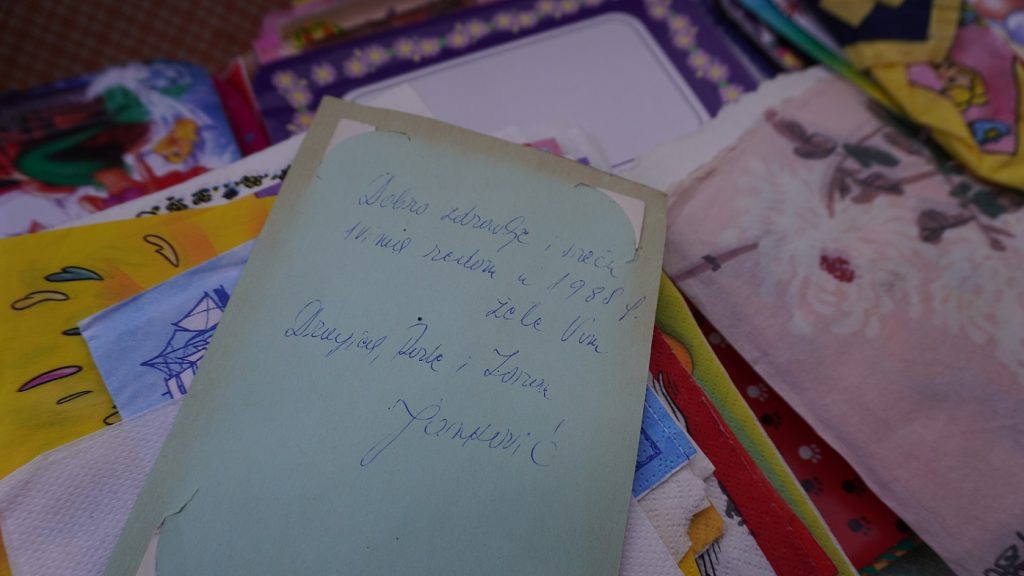 Dobro zdravlje i sreću
i redom u 1988 g.
žele Vam
Dragica, i Zoran
Janković